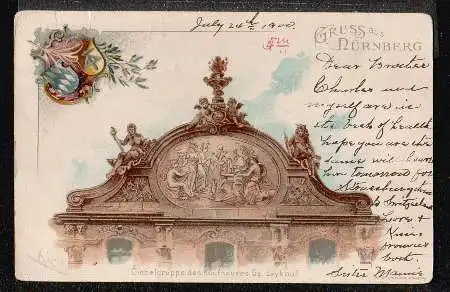 July 24th 1900.
GRUSS aus
NÜRNBERG
Dear Brother
Charles and
myself are in
the best of health
hope you are the
same will leave
here tomorrow for
Strassburg then
to Switzerland
Love &
Kisses
from your
Sister Mamie
Giebelgruppe des Kaufhauses Gg. Leykauf